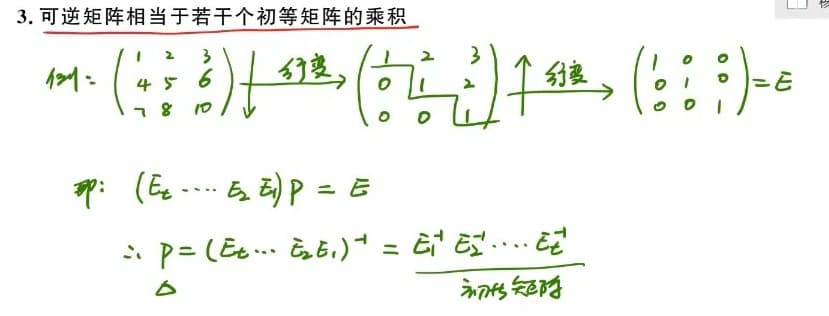 3. 可逆矩阵相当于若干个初等矩阵的乘积
例: (1 2 3 4 5 6 7 8 10) 行变 (1 2 3 0 1 2 0 0 1) 行变 (1 0 0 0 1 0 0 0 1) = E
即: (Et ···· E2 E1) P = E
∴ P = (Et ··· E2 E1)⁻¹ = E1⁻¹ E2⁻¹ ···· Et⁻¹
初等矩阵